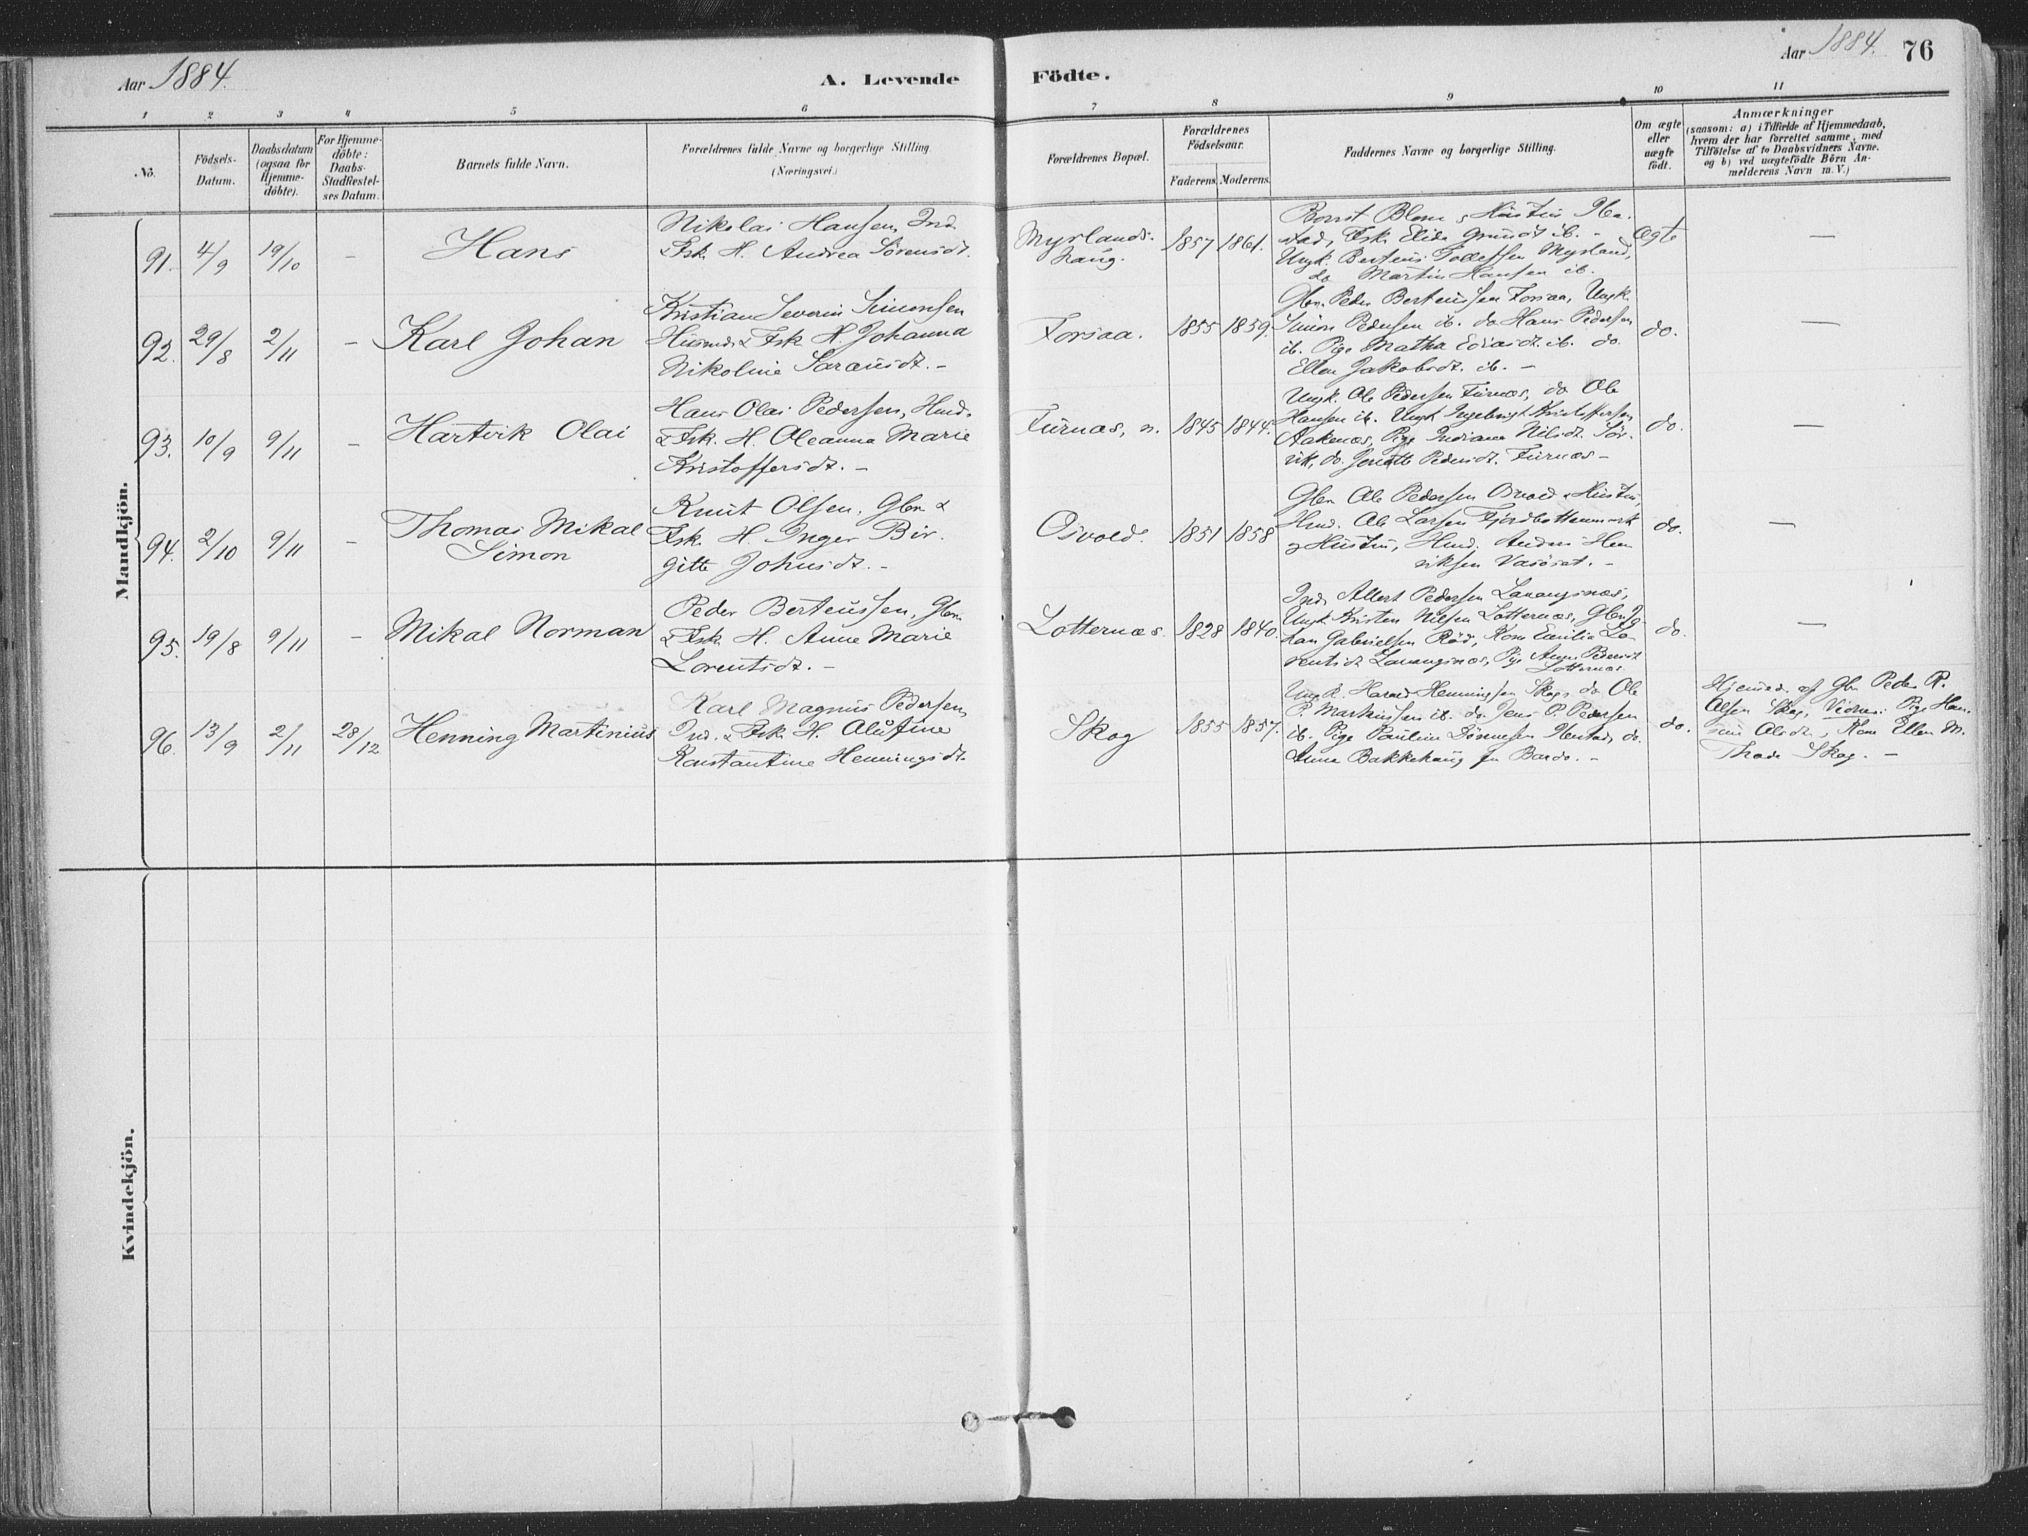 Aar 1884.
A. Levende
Födte.
Aar 1884.
76
1 2 3 4 5 6 7 8 9 10 11
No.
Födsels-Datum.
Daabsdatum (ogsaa for Hjemme-döbte).
For Hjemme-döbte: Daabs-Stadfæstel-ses Datum.
Barnets fulde Navn.
Forældrenes fulde Navne og borgerlige Stilling
(Næringsvei.)
Forældrenes Bopæl.
Forældrenes Födselsaar.
Faderens. Moderens.
Faddernes Navne og borgerlige Stilling.
Om ægte eller uægte födt.
Anmærkninger
(saasom: a) i Tilfælde af Hjemmedaab,
hvem der har forrettet samme, med
Tilföielse af to Daabsvidners Navne.
og b) ved uægtefödte Börn An-
melderens Navn m. V.)
Mandkjön.
91. 4/9 19/10 –
Hans
Nikolai Hansen, Ind.
& Fsk. H. Andrea Sörensdt.
Myrlands-
haug.
1857 1861.
Ungk. Berteus Tollefsen Myrland,
do Martin Hansen ib.
Ægte
—
92. 29/8 2/11 –
Karl Johan
Kristian Severin Simonsen
Husmd. & Fsk. H. Johanna
Nikoline Sarausdt. –
Forsaa.
1855 1859.
Gbr. Peder Berteussen Forsaa, Ungk.
Simon Pedersen ib. do Hans Pedersen
ib. Pige Matha Edvardsdt. ib. do.
Ellen Jakobsdt. ib. –
do.
—
93. 10/9 9/11 –
Hartvik Olai
Hans Olai Pedersen, Husmd.
& Fsk. H. Oleanna Marie
Kristoffersdt. –
Furnæs, n.
1845 1844.
Ungk. Ole Pedersen Furnæs, do Ole
Hansen ib. Ungk. Ingebrigt Kristoffersen
Aakenæs, Pige Indiana Nilsdt. Sör-
vik, do. Jenette Pedersdt. Furnæs –
do.
—
94. 2/10 9/11 –
Thomas Mikal
Simon
Knut Olsen, Gbr. &
Fsk. H. Inger Bir-
gitte Johnsdt. –
Osvold.
1851 1858
Gbr. Ole Pedersen Osvold & Hustru,
Husmd. Ole Larsen Fjordbottenmark
& Hustru, Husmd. Anders Hen-
riksen –
do.
—
95. 19/8 9/11 –
Mikal Norman
Peder Berteussen, Gbr.
& Fsk. H. Anne Marie
Lorentsdt. –
Lotternæs.
1828 1840.
Ind. Albert Pedersen Lavangsnæs,
Ungk. Kristen Nilsen Lotternæs, Gbr. Jo-
han Gabrielsen Röd, Kone Emilie Lo-
rentsdt. Lavangsnæs, Pige Anne Pedersdt.
Lotternæs.
do.
—
96. 13/9 2/11 28/12
Henning Martinius
Karl Magnus Pedersen,
Ind. & Fsk. H. Alüfine
Konstantine Henningsdt.
Skog
1855 1857.
Ungk. Harald Henningsen Skog, do Ole
P. Martinussen ib. do Jens P. Pedersen
ib. Pige Pauline Sörensen do.
Anna Bakkehaug fra Bardo. –
do.
Hjemmed. af Gbr. Peder R.
Olsen Skog, Vidner: Pige Han-
sine Olsdt., Kone Ellen M.
Skog. –
Kvindekjön.